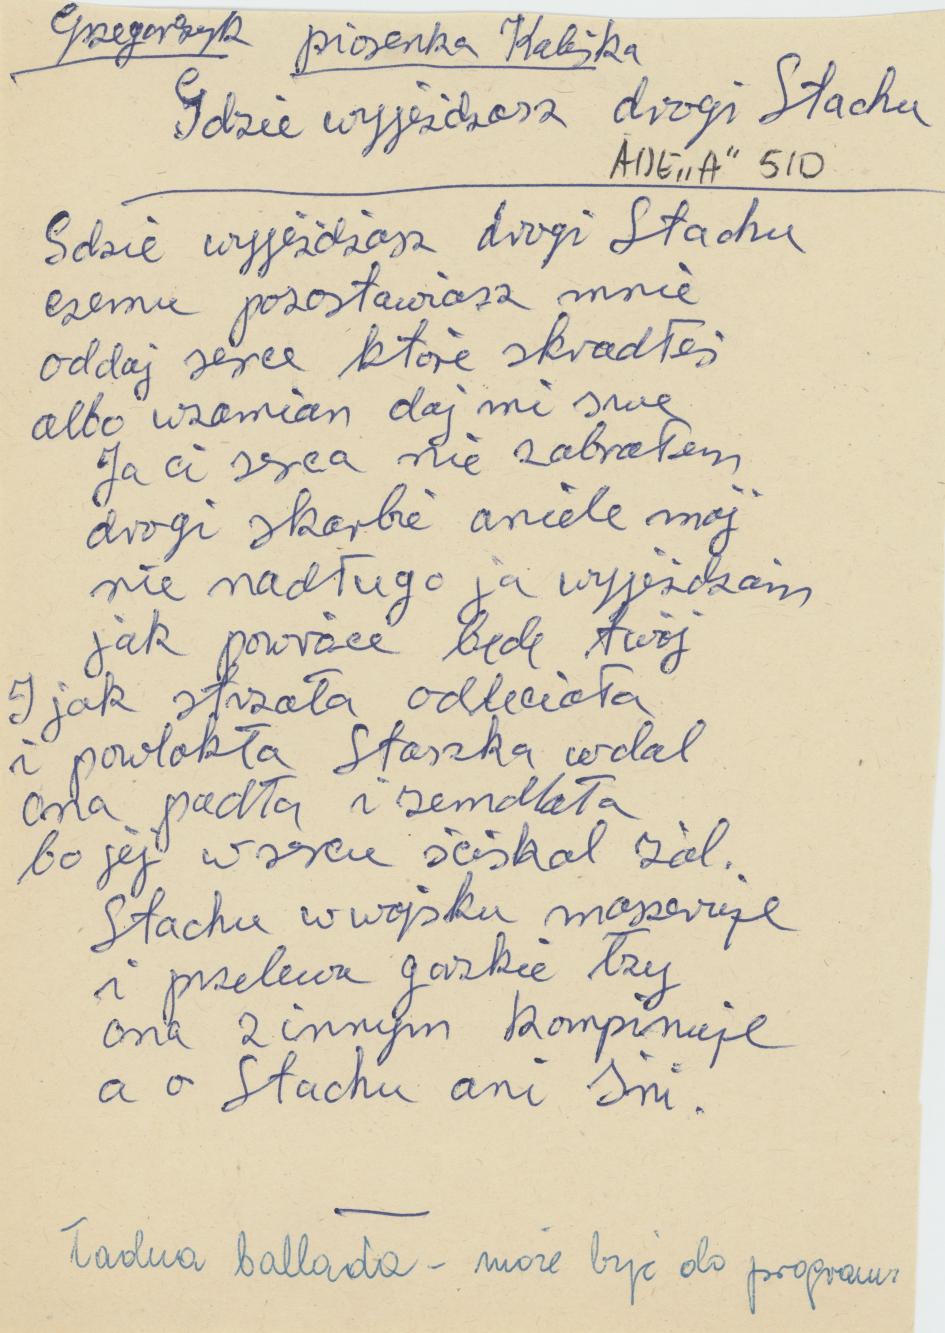 Grzegorzyk piosenka Kaliska
Gdzie wyjeżdżasz drogi Stachu
ADE „A" 510
Gdzie wyjeżdżasz drogi Stachu
czemu pozostawiasz mnie
oddaj serce któie skradłeś
albo wzamian daj mi swe
Ja ci serca nie zabrałem
drogi skarbie aniele mój
nie nadługo ja wyjeżdżam
jak powrócę będę twój
I jak strzała odleciała
i powlokła Staszka wdal
ona padła i zemdlała
bo jej w sercu ściskal żal.
Stachu w wojsku maszeruje
i przelewa gorzkie łzy
ona z innym kompinuje
a o Stachu ani śni.
Ładna ballada - może być do programu